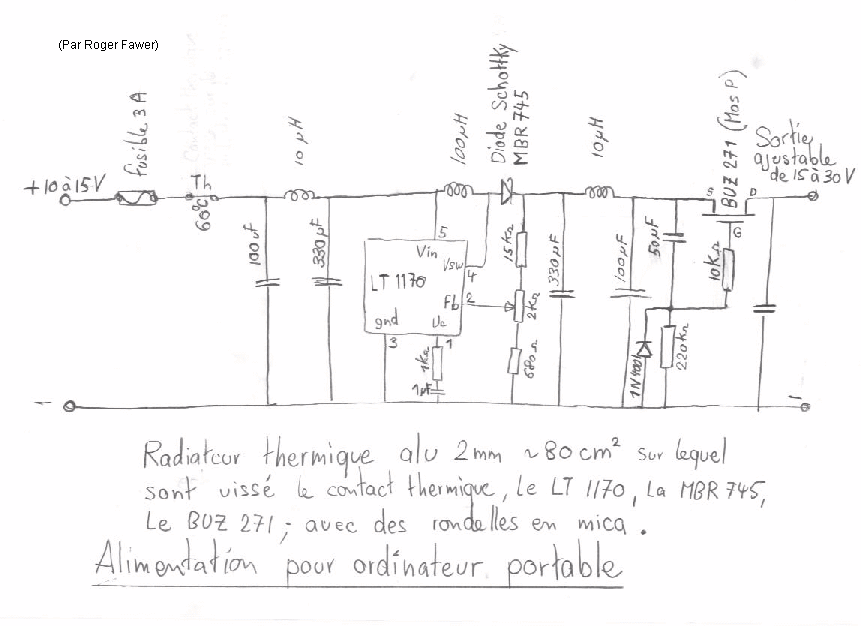 (Par Roger Fawer)
+10 à 15V
fusible 3A
Th
60°C
10 µH
100µH
Diode Schottky
MBR 745
10 µH
BUZ 271 (Mos P)
Sortie
ajustable
de 15 à 30V
S
D
G
100 µF
330µF
5
Vin
Vsw
4
LT 1170
Fb
2
gnd
Vc
3
1
1KΩ
1µF
15KΩ
2KΩ
680Ω
330µF
100µF
50µF
10KΩ
1N4001
220KΩ
-
Radiateur thermique alu 2mm ~80 cm² sur lequel
sont vissé le contact thermique, le LT 1170, La MBR 745,
Le BUZ 271; avec des rondelles en mica.
Alimentation pour ordinateur portable